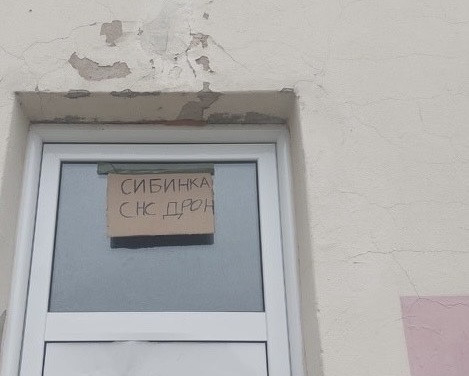 СИБИНКА
СНС ДРОН